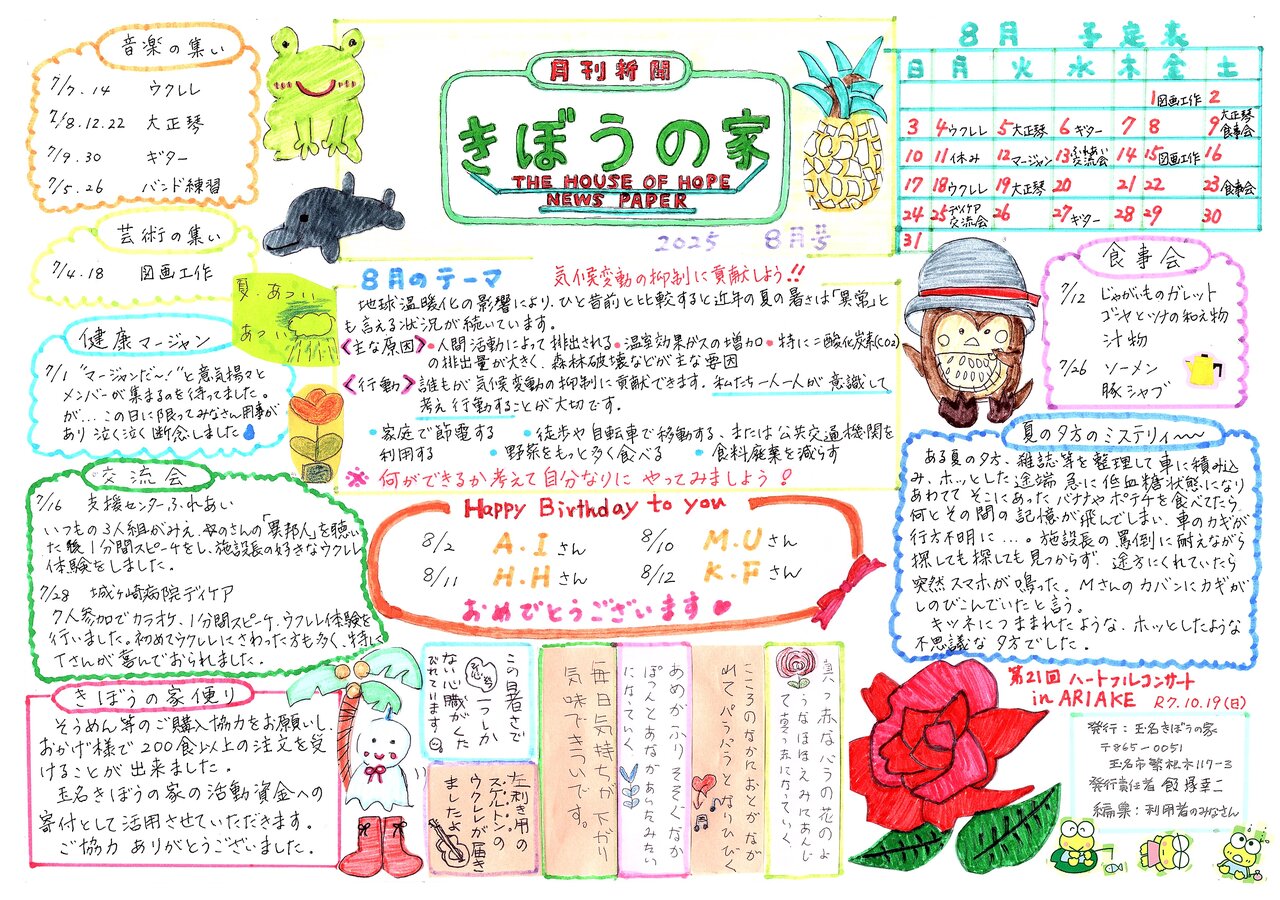 月刊新聞
きぼうの家
THE HOUSE OF HOPE
NEWS PAPER
2025 8月号
音楽の集い
7/7.14 ウクレレ
7/8.12.22 大正琴
7/9.30 ギター
7/5.26 バンド練習
芸術の集い
7/4.18 図画工作
夏・あつい
あつい
健康マージャン
7/1 "マージャンだ〜!"と意気揚々と
メンバーが集まるのを待ってました。
が...この日に限ってみなさん用事が
あり泣く泣く断念しました
交流会
7/16 支援センターふれあい
いつもの3人組がみえ、女のさんの「異邦人」を聴い
た後1分間スピーチをし、施設長の好きなウクレレ
体験をしました。
7/28 城ヶ崎病院デイケア
7人参加でカラオケ、1分間スピーチ、ウクレレ体験を
行いました。初めてウクレレにさわった方も多く、特に
Tさんが喜んでおられました。
きぼうの家便り
そうめん等のご購入協力をお願いし、
おかげ様で200食以上の注文を受
けることが出来ました。
玉名きぼうの家の活動資金への
寄付として活用させていただきます。
ご協力ありがとうございました。
8月のテーマ 気候変動の抑制に貢献しよう!!
地球温暖化の影響により、ひと昔前と比較すると近年の夏の暑さは「異常」と
も言える状況が続いています。
<主な原因>・人間活動によって排出される・温室効果ガスの増加・特に二酸化炭素(CO2)
の排出量が大きく、森林破壊などが主な要因
<行動>誰もが気候変動の抑制に貢献できます。私たち一人一人が意識して
考え行動することが大切です。
・家庭で節電する ・徒歩や自転車で移動する、または公共交通機関を
利用する ・野菜をもっと多く食べる ・食料廃棄を減らす
※何ができるか考えて自分なりにやってみましょう!
Happy Birthday to you
8/2 A.Iさん 8/10 M.Uさん
8/11 H.Hさん 8/12 K.Fさん
おめでとうございます
8月 予定表
日 月 火 水 木 金 土
1図画工作 2
3 4ウクレレ 5大正琴 6ギター 7 8 9大正琴 食事会
10 11休み 12マージャン 13ふれあい交流会 14 15図画工作 16
17 18ウクレレ 19大正琴 20 21 22 23食事会
24 25デイケア交流会 26 27ギター 28 29 30
31
食事会
7/12 じゃがいものガレット
ゴーヤとツナの和え物
汁物
7/26 ソーメン
豚シャブ
夏の夕方のミステリィ〜〜
ある夏の夕方、雑誌等を整理して車に積み込
み、ホッとした途端急に低血糖状態になり
あわててそこにあったバナナやポテチを食べてたら
何とその間の記憶が飛んでしまい、車のカギが
行方不明に...。施設長の罵倒に耐えながら
探しても探しても見つからず、途方にくれていたら
突然スマホが鳴った。Mさんのカバンにカギが
しのびこんでいたと言う。
キツネにつままれたような、ホッとしたような
不思議な夕方でした。
真っ赤なバラの花のよ
うなほほえみにあんじ
て真っ赤になっていく
こころのなかにおとがなが
れてパラパラとなりひびく
あめがふりそそぐなか
ぽつんとあながあいたみたい
になっていく
毎日気持ちが下がり
気味できついです。
この暑さで
ない心臓がくた
びれています
左利き用の
スケルトンの
ウクレレが届き
ましたよ
第21回 ハートフルコンサート
in ARIAKE R7.10.19(日)
発行:玉名きぼうの家
〒865-0051
玉名市繁根木117-3
発行責任者 飯塚幸二
編集:利用者のみなさん